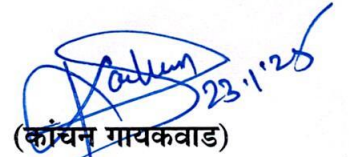 23.1'25
(कांचन गायकवाड)